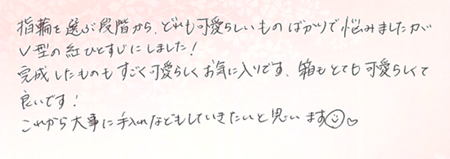 指輪を選ぶ段階から、どれも可愛らしいものばかりで悩みましたが
V型の紅ひとすじにしました!
完成したものもすごく可愛らしくお気に入りです。箱もとても可愛らしくて
良いです!
これから大事に手入れなどもしていきたいと思います☺♡